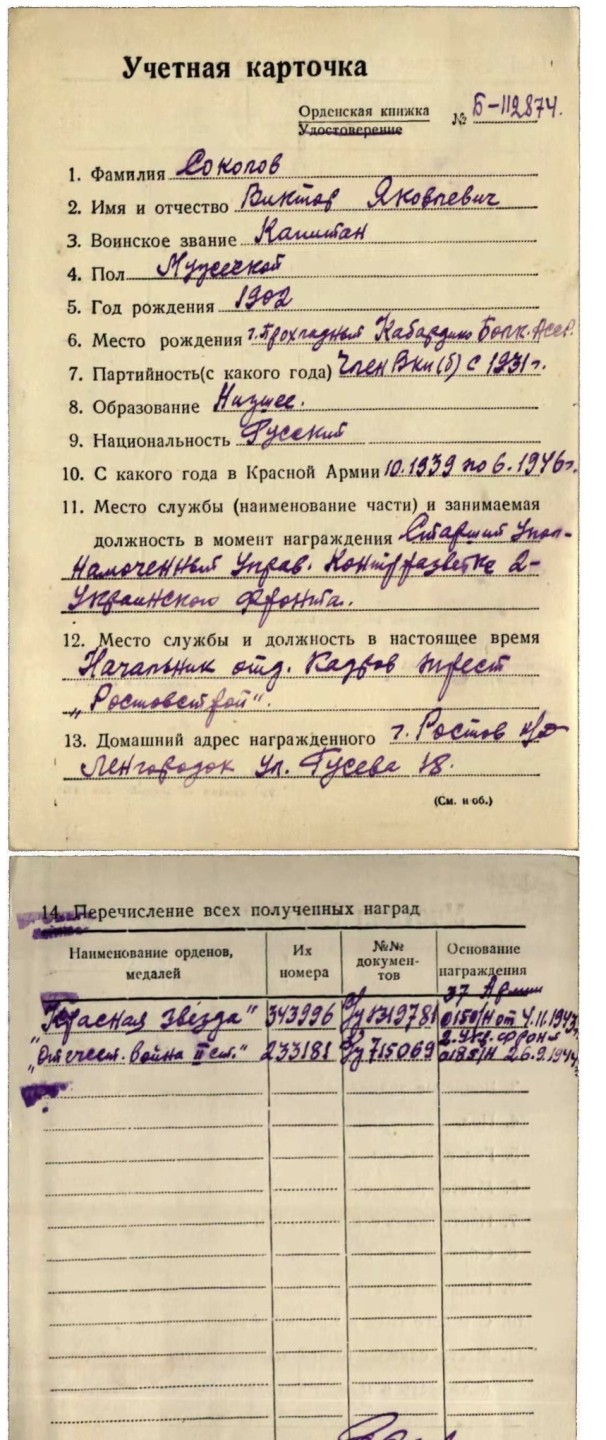 Учетная карточка
Орденская книжка № Б-112874.
Удостоверение
1. Фамилия Соколов
2. Имя и отчество Виктор Яковлевич
3. Воинское звание Капитан
4. Пол Мужской
5. Год рождения 1902
6. Место рождения г. Прохладный Кабардино Балк. Асср.
7. Партийность(с какого года) Член Вкп(б) с 1931 г.
8. Образование Низшее.
9. Национальность Русский
10. С какого года в Красной Армии 10.1939 по 6.1946г.
11. Место службы (наименование части) и занимаемая
должность в момент награждения Старший Упол-
намоченный Управ. Контрразветка 2-
Украинского Фронта.
12. Место службы и должность в настоящее время
Начальник отд. Кадров трест
„Ростовстрой".
13. Домашний адрес награжденного г. Ростов н/Д
Ленгородок ул. Гусева 18.
(См. н об.)
14. Перечисление всех полученных наград
Наименование орденов, Их №№ Основание
медалей номера докумен- награждения
тов
37 Армии
"Красная Звезда" 343996 319781 0150/н от 4.11.1943г.
2. Укр. Фронт
„Отечест. Война II ст." 233181 715069 0185/н 26.9.1944г.